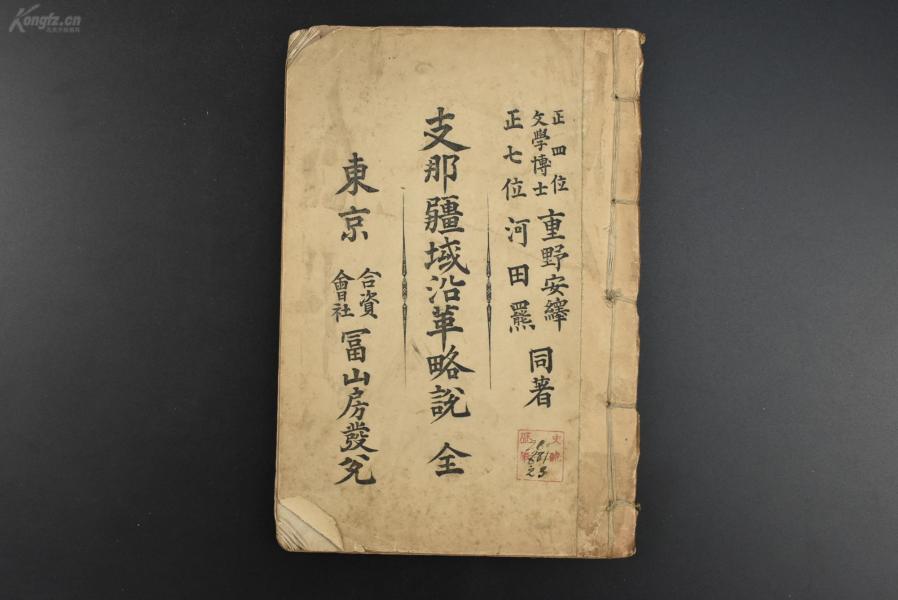 正四位
文學博士 重野安繹
正七位 河田羆 同著
支那疆域沿革略說 全
東京 合資會社 冨山房發兌
Kongfz.cn